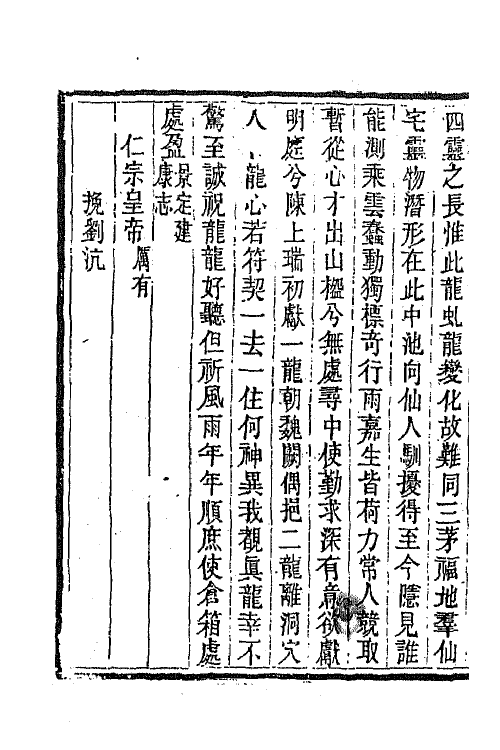 四靈之長惟此龍虬龍變化故難同三茅福地羣仙
宅靈物潛形在此中池向仙人馴擾得至今隱見誰
能測乘雲蠢動獨標奇行雨嘉生皆荷力常人競取
暫從心才出山楹兮無處尋中使勤求深有意欲獻
明庭兮陳上瑞初獻一龍朝魏闕偶挹二龍離洞穴
人龍心若符契一去一住何神異我觀眞龍幸不
驚至誠祝龍龍好聽但祈風雨年年順庶使倉箱處
處盈景定建康志
仁宗皇帝厲有
挽劉沆